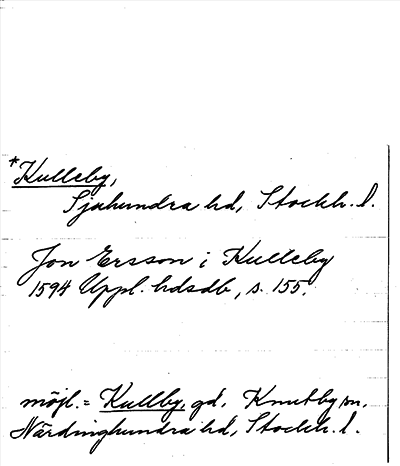 *Kulleby,
Sjuhundra hd, Stockh. l.
Jon Ersson i Kulleby
1594 Uppl. hdsdb, s. 155.
möjl. = Kullby, gd, Knutby sn,
Närdinghundra hd, Stockh. l.